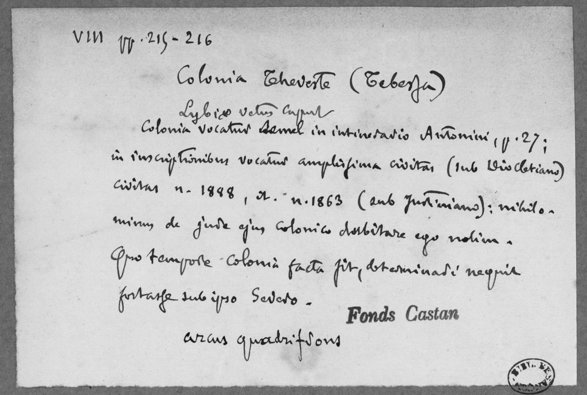 VIII pp. 215-216
Colonia Theveste (Tebessa)
Lybiæ vetus caput
Colonia vocatur semel in intinerario Antonini, p. 27;
in inscriptionibus vocatur amplissima civitas (sub Diocletiano)
civitas n. 1888, et n. 1863 (sub Justiniano); nihilo-
minus de jude ejus colonico dubitare ego nolim.
Quo tempore colonia facta sit, determinari nequit
fortasse sub ipso Severo.
Fonds Castan
arcus quadrifrons